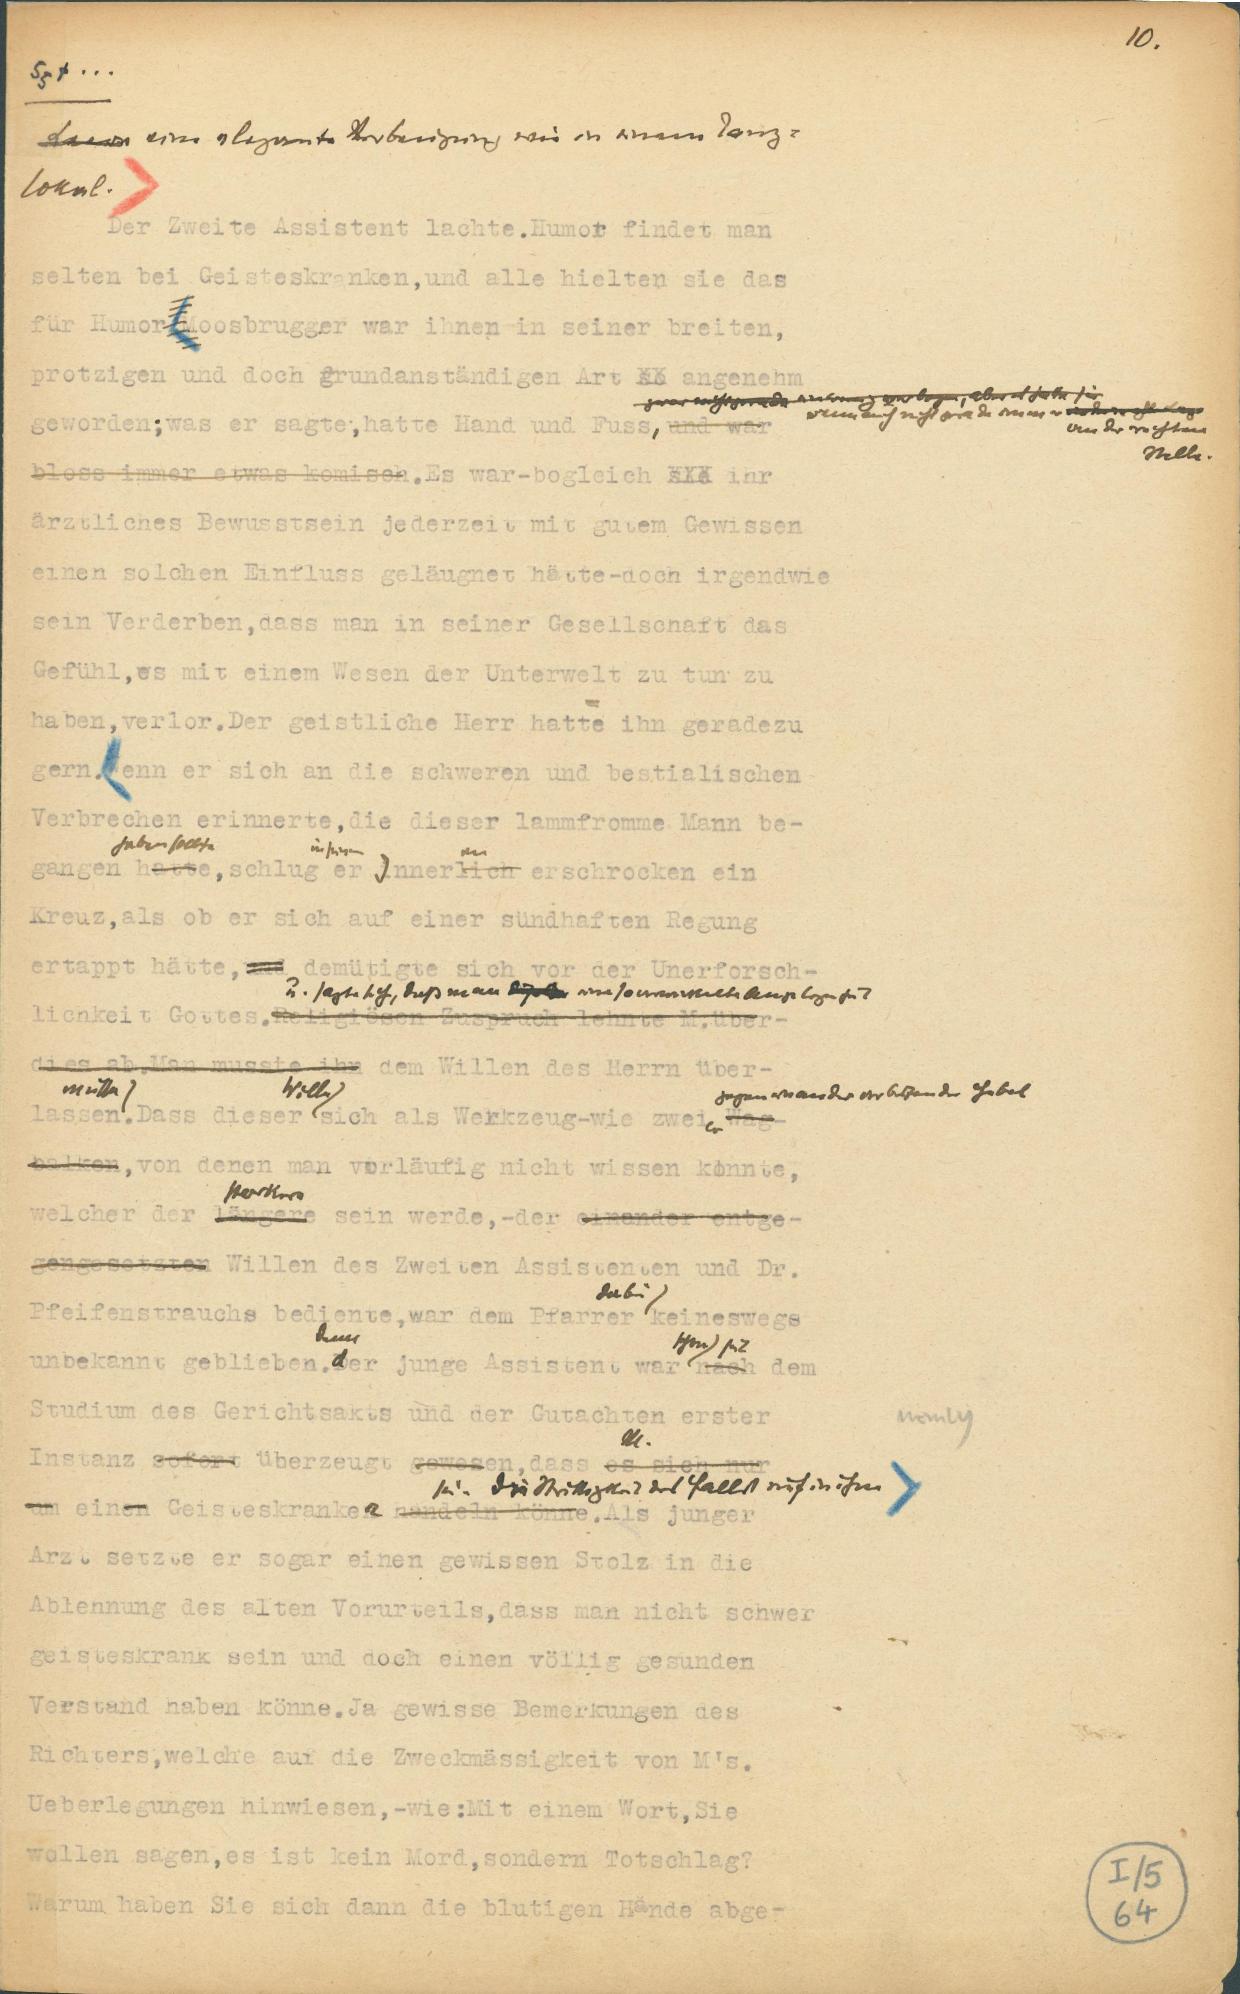 10.
Sgt...
eine elegante Verbeugung wie in einem Tanz=
lokal.
Der Zweite Assistent lachte.Humor findet man
selten bei Geisteskranken,und alle hielten sie das
für Humor Moosbrugger war ihnen in seiner breiten,
protzigen und doch grundanständigen Art so angenehm
wenn auch nicht gerade immer
an der rechten
geworden;was er sagte,hatte Hand und Fuss,und war
Stelle.
bloss immer etwas komisch.Es war-bogleich sie ihr
ärztliches Bewusstsein jederzeit mit gutem Gewissen
einen solchen Einfluss geläugnet hätte-doch irgendwie
sein Verderben,dass man in seiner Gesellschaft das
Gefühl,es mit einem Wesen der Unterwelt zu tun zu
haben,verlor.Der geistliche Herr hatte ihn geradezu
gern.Wenn er sich an die schweren und bestialischen
Verbrechen erinnerte,die dieser lammfromme Mann be-
haben sollte
gangen hatte,schlug er innerlich erschrocken ein
Kreuz,als ob er sich auf einer sündhaften Regung
ertappt hätte,und demütigte sich vor der Unerforsch-
u. sagte sich, daß man eine so verwickelte Angelegenheit
lichkeit Gottes.Religiösen Zuspruch lehnte M.über-
dies ab.Man musste ihn dem Willen des Herrn über-
müsse Wille gegeneinander arbeitender Hebel
lassen.Dass dieser sich als Werkzeug-wie zwei Wag-
balken,von denen man vorläufig nicht wissen könnte,
stärkere
welcher der längere sein werde,-der einander entge-
gengesetzten Willen des Zweiten Assistenten und Dr.
dabei
Pfeifenstrauchs bediente,war dem Pfarrer keineswegs
unbekannt geblieben.der junge Assistent war nach dem
Studium des Gerichtsakts und der Gutachten erster
M.
Instanz sofort überzeugt gewesen,dass es sich nur
sei. Die Strittigkeit des Falles
um einen Geisteskranker handeln könne.Als junger
Arzt setzte er sogar einen gewissen Stolz in die
Ablehnung des alten Vorurteils,dass man nicht schwer
geisteskrank sein und doch einen völlig gesunden
Verstand haben könne.Ja gewisse Bemerkungen des
Richters,welche auf die Zweckmässigkeit von M's.
Ueberlegungen hinwiesen,-wie:Mit einem Wort,Sie
wollen sagen,es ist kein Mord,sondern Totschlag?
Warum haben Sie sich dann die blutigen Hände abge-
I/5
64